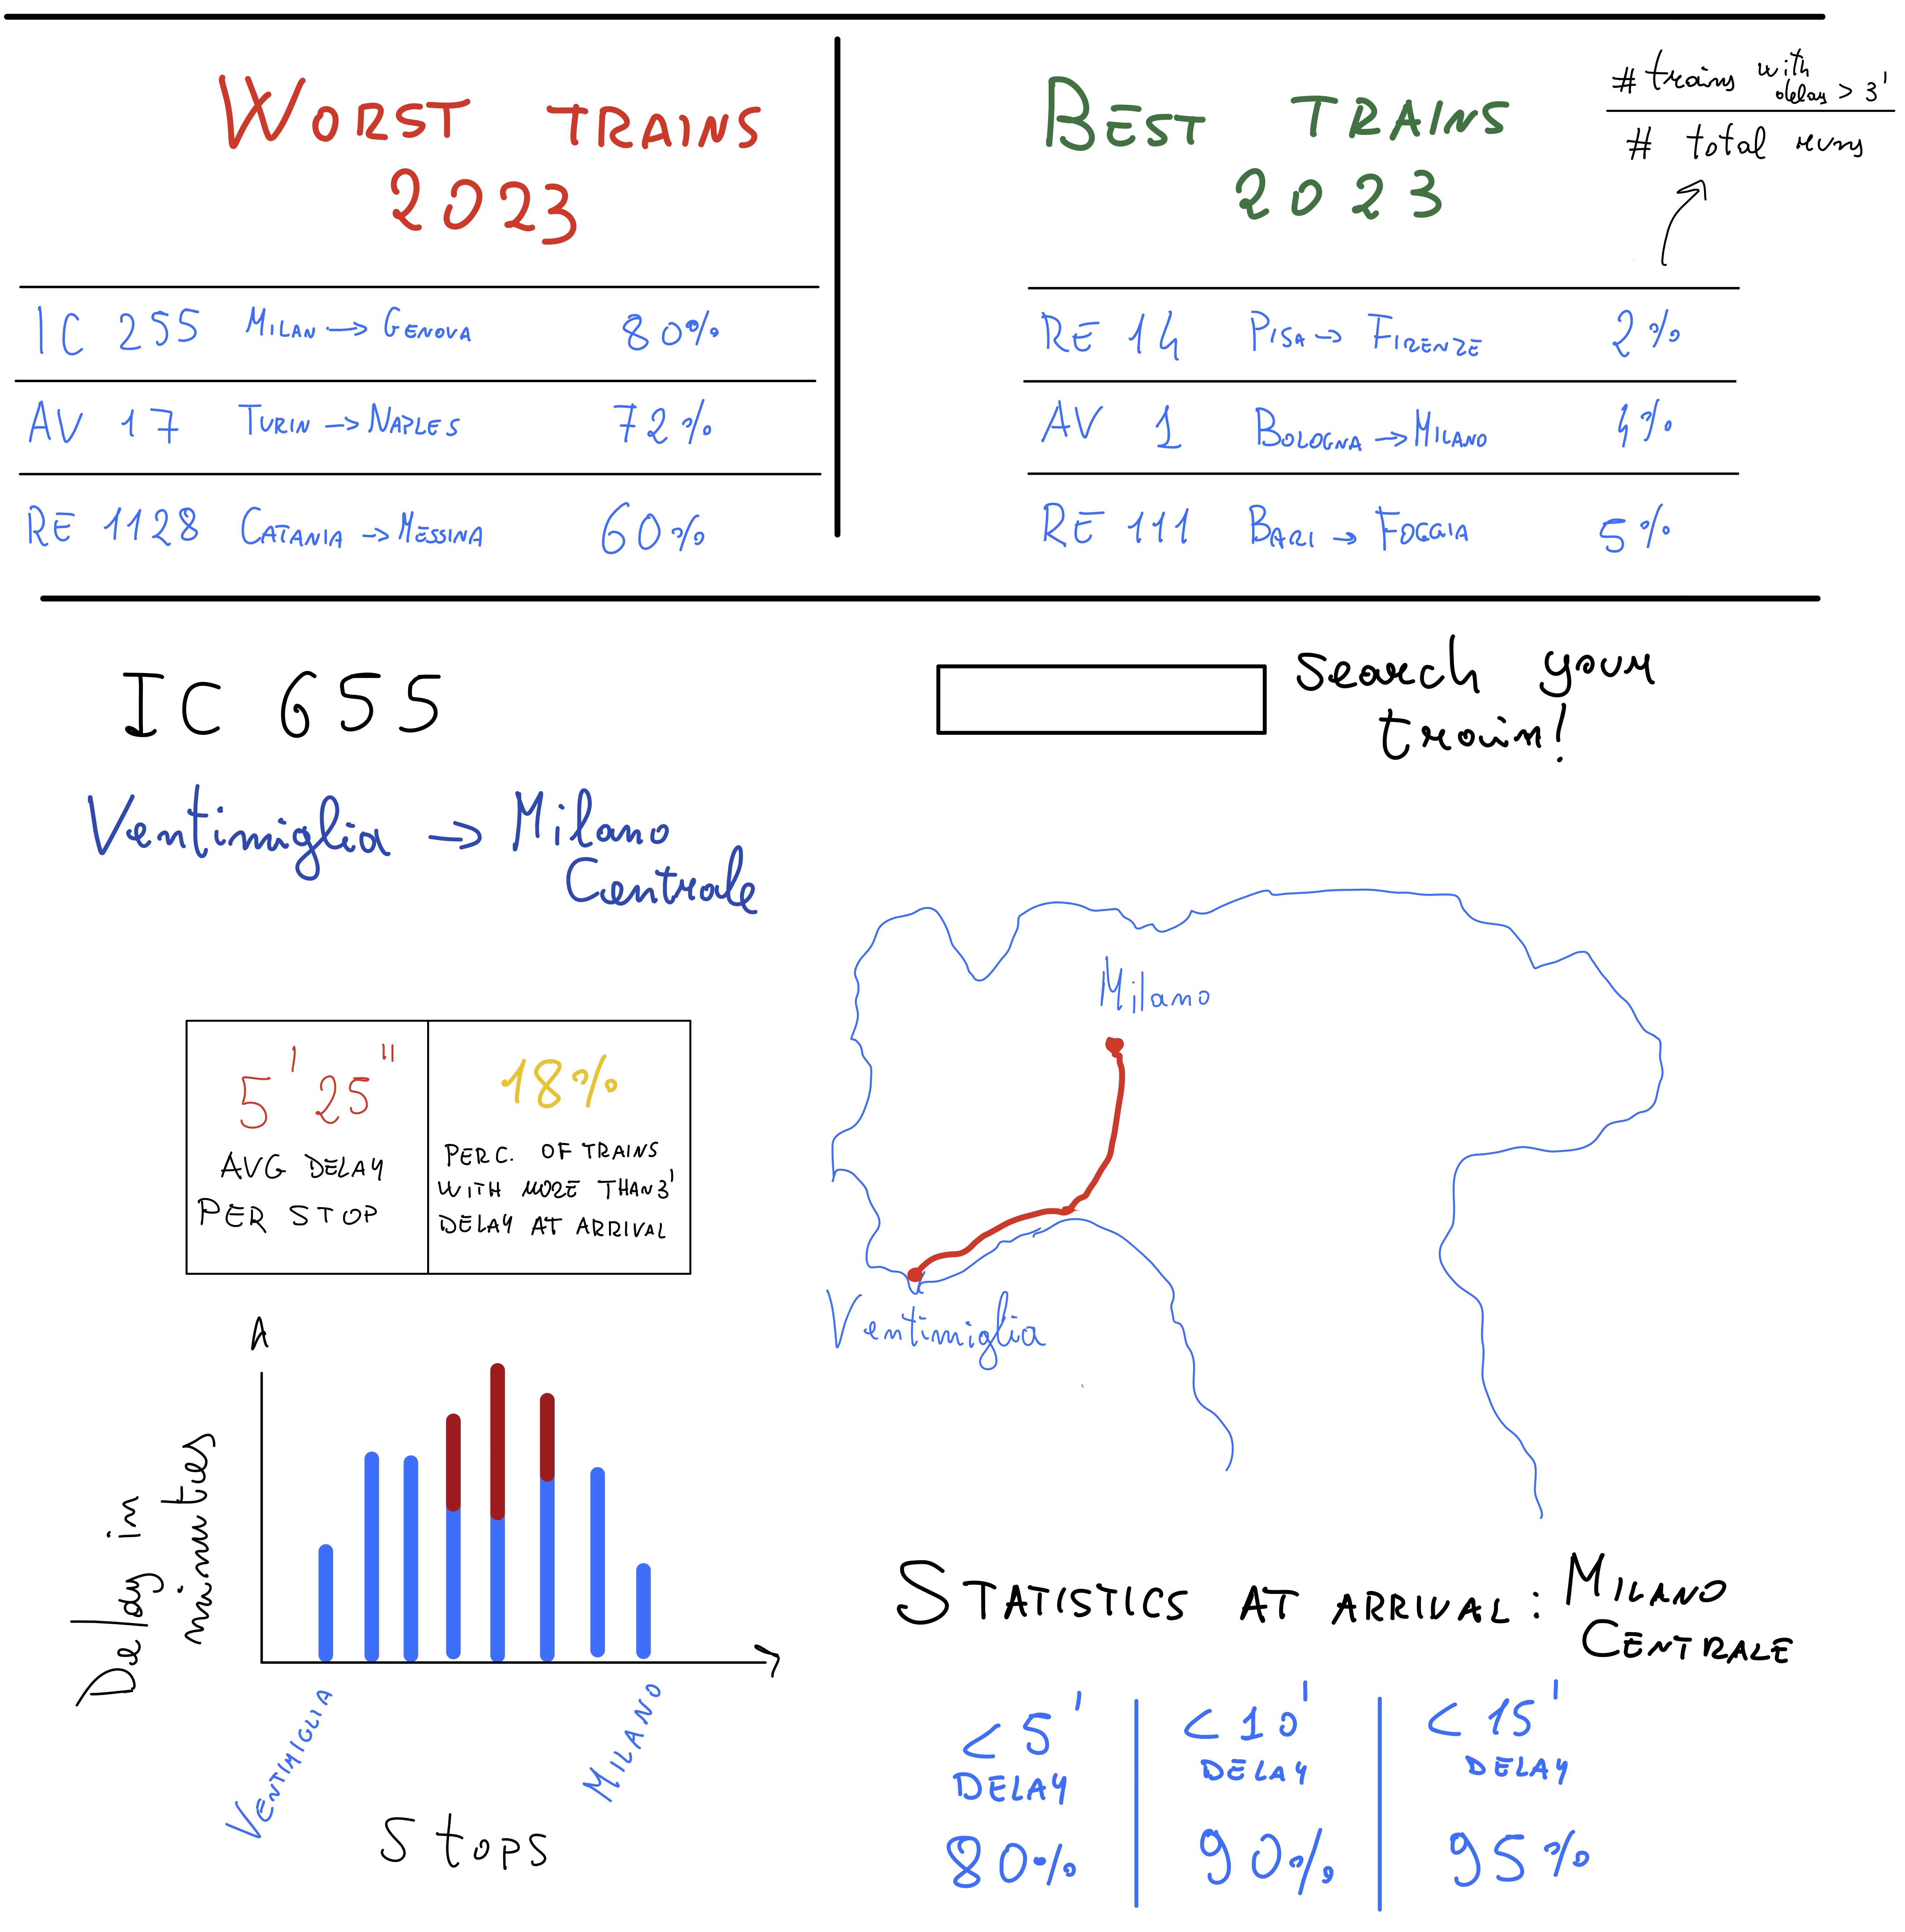 WORST TRAINS
2023
IC 255 MILAN → GENOVA 80%
AV 17 TURIN → NAPLES 72%
RE 1128 CATANIA → MESSINA 60%
BEST TRAINS
2023
# trains with delay > 3'
# total runs
RE 14 PISA → FIRENZE 2%
AV 1 BOLOGNA → MILANO 4%
RE 111 BARI → FOGGIA 5%
IC 655
Search your
train!
Ventimiglia → Milano
Centrale
5' 25"
AVG DELAY
PER STOP
18%
PERC. OF TRAINS
WITH MORE THAN 3'
DELAY AT ARRIVAL
Milano
Ventimiglia
Delay in
minutes
VENTIMIGLIA
MILANO
Stops
STATISTICS AT ARRIVAL: MILANO
CENTRALE
< 5'
DELAY
80%
< 10'
DELAY
90%
< 15'
DELAY
95%